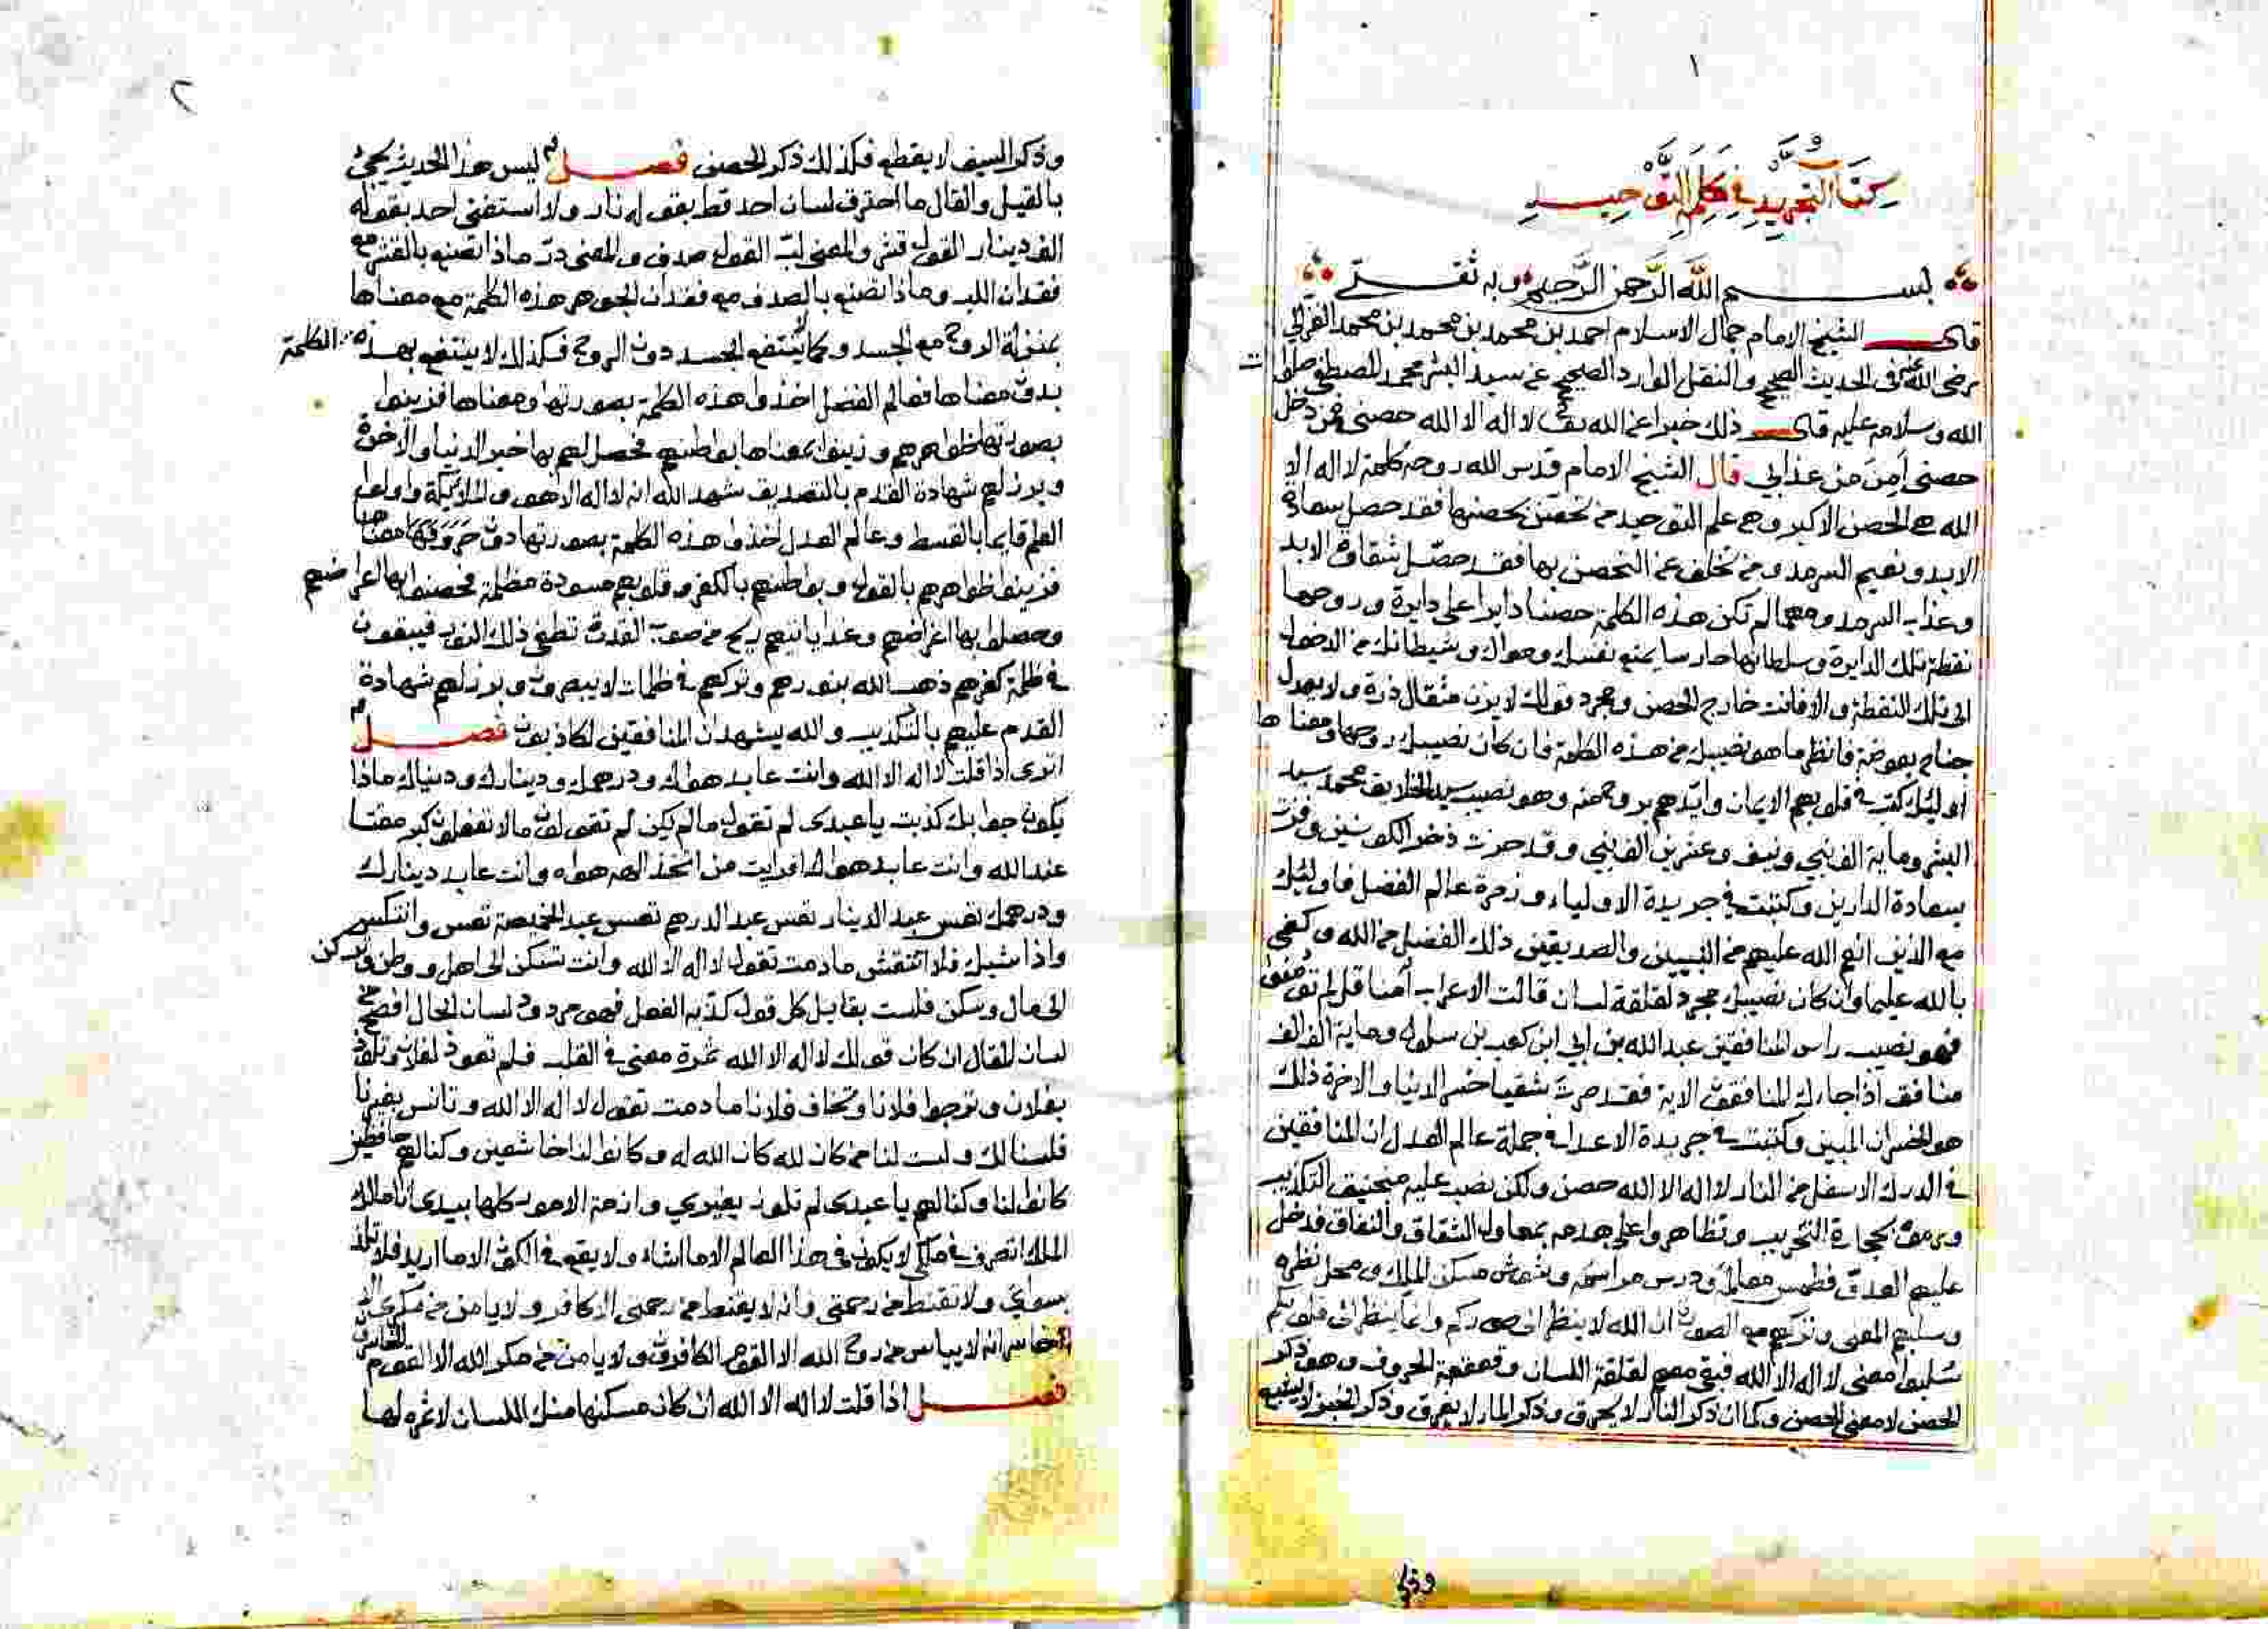 ١
كتاب التجريد في كلمة التوحيد
بسم الله الرحمن الرحيم وبه ثقتي
قال الشيخ الامام جمال الاسلام احمد بن محمد بن محمد بن محمد الغزالي
رضي الله عنه في الحديث الصحيح والنقل الوارد الصحيح عن سيد البشر محمد المصطفى صلوات
الله وسلامه عليه قال ذلك خبرا عن الله تعالى لا اله الا الله حصني فمن دخل
حصني أمِنَ من عذابي قال الشيخ الامام قدس الله روحه كلمة لا اله الا
الله هي الحصن الاكبر وهي علم التوحيد من تحصن بحصنها فقد حصل سعادة
الابد ونعيم السرمد ومن تخلف عن التحصن بها فقد حصّل شقاوة الابد
وعذاب السرمد ومهما لم تكن هذه الكلمة حصنا دايرا على دايرة وروحها
نقطة تلك الدايرة وسلطانها حارسا يمنع نفسك وهواك وشيطانك من الدخول
الى تلك النقطة والا فانت خارج الحصن ومجرد قولك لا يزن مثقال ذرة ولا يعدل
جناح بعوضة فانظر ما هو نصيبك من هذه الكلمة فان كان نصيبك روحها ومعناها
اولئك كتب في قلوبهم الايمان وايّدهم بروح منه وهو نصيب سيد الخلايق محمد سيد
البشر وماية الف نبي ونيف وعشرين الف نبي وقد حزت ذخر الكونين وفزت
بسعادة الدارين وكتبت في جريدة الاولياء وزمرة عالم الفضل فاولئك
مع الذين انعم الله عليهم من النبيين والصديقين ذلك الفضل من الله وكفى
بالله عليما وان كان نصيبك مجرد لقلقة لسان قالت الاعراب آمنا قل لم تؤمنوا
فهو نصيب راس المنافقين عبد الله بن ابي ابن كعب بن سلول وماية الف الف
منافق اذا جاءك المنافقون الاية فقد صرت شقيا خسر الدنيا والاخرة ذلك
هو الخسران المبين وكتبت في جريدة الاعدا في جملة عالم العدل ان المنافقين
في الدرك الاسفل من النار لا اله الا الله حصن ولكن نصب عليه منجنيق التكذيب
ورموه بحجارة التخريب وتظاهروا على هدمه بمعاول الشقاق والنفاق فدخل
عليهم العدوّ فطمس معالمه ودرس مراسمه وشوش مسكن الملك ومحل نظره
وسلبهم المعنى وتركهم مع الصورة ان الله لا ينظر الى صوركم وانما ينظر الى قلوبكم
سُلبوا معنى لا اله الا الله فبقي معهم لقلقة اللسان وقعقعة الحروف وهو ذكر
الحصن لا معنى الحصن وكما ان ذكر النار لا يحرق وذكر الماء لا يغرق وذكر الخبز لا يشبع
وذكر
٢
وذكر السيف لا يقطع فكذلك ذكر الحصن فصل ليس هذا الحديث يجئ
بالقيل والقال ما احترق لسان احد قط بقوله نار ولا استغنى احد بقوله
الف دينار القول قشر والمعنى لبّ القول صدف والمعنى درّ ماذا تصنع بالقشر مع
فقدان اللب وماذا تصنع بالصدف مع فقدان الجوهر هذه الكلمة مع معناها
بمنزلة الروح مع الجسد وكما لا ينتفع الجسد دون الروح فكذلك لا ينتفع بهذه الكلمة
بدون معناها فعالم الفضل اخذوا هذه الكلمة بصورتها ومعناها فزينوا
بصورتها ظواهرهم وزينوا بمعناها بواطنهم فحصل لهم بها خير الدنيا والآخرة
وبرز لهم شهادة القدم بالتصديق شهد الله انه لا اله الا هو والملائكة واولوا
العلم قايما بالقسط وعالم العدل اخذوا هذه الكلمة بصورتها دون معناها
فزينوا ظواهرهم بالقول وبواطنهم بالكفر وقلوبهم مسودة مظلمة فحصنوا بها اعراضهم
وحصلوا بها اغراضهم وغدا ياتيهم ريح من صوب القدرة تطفئ ذلك النور فيبقون
في ظلمة كفرهم ذهب الله بنورهم وتركهم في ظلمات لا يبصرون وبرز لهم شهادة
القدم عليهم بالتكذيب والله يشهد ان المنافقين لكاذبون فصل
اترى اذا قلت لا اله الا الله وانت عابد هواك ودرهمك ودينارك ودنياك ماذا
يكون جوابك كذبت يا عبدى لم تقول ما لم يكن لم تقولون ما لا تفعلون كبر مقتا
عند الله وانت عابد هواك افرايت من اتخذ الهه هواه وانت عابد دينارك
ودرهمك تعس عبد الدينار تعس عبد الدرهم تعس عبد الخميصة تعس وانتكس
واذا شيك فلا انتقش ما دمت تقول لا اله الا الله وانت تسكن الى اهل ووطن وتركن
الى مال وسكن فلست بقايل كل قول كذّبه الفعل فهو مردود لسان الحال افصح من
لسان المقال ان كان قولك لا اله الا الله ثمرة معنى في القلب فلم تعوذ لفلان وتلوذ
بفلان وترجوا فلانا وتخاف فلانا ما دمت تقول لا اله الا الله وتانس بغيرنا
فلسنا لك ولست لنا من كان لله كان الله له وكانوا لنا خاشعين وكنا لهم حافظين
كانوا لنا وكنا لهم يا عبدى لم تلوذ بغيري وازمة الامور كلها بيدى انا مالك
الملك اتصرف في ملكي لا يكون في هذا العالم الا ما اشاء ولا يقع في الكون الا ما اريد فلا تلذ
بسوائي ولا تقنط من رحمتى وانه لا يقنط من رحمتى الا كافر ولا يامن من مكرى الا
الخاسر انه لا يياس من روح الله الا القوم الكافرون ولا يامن من مكر الله الا القوم الخاسرون
فصل اذا قلت لا اله الا الله ان كان مسكنها منك اللسان لا ثمره لها